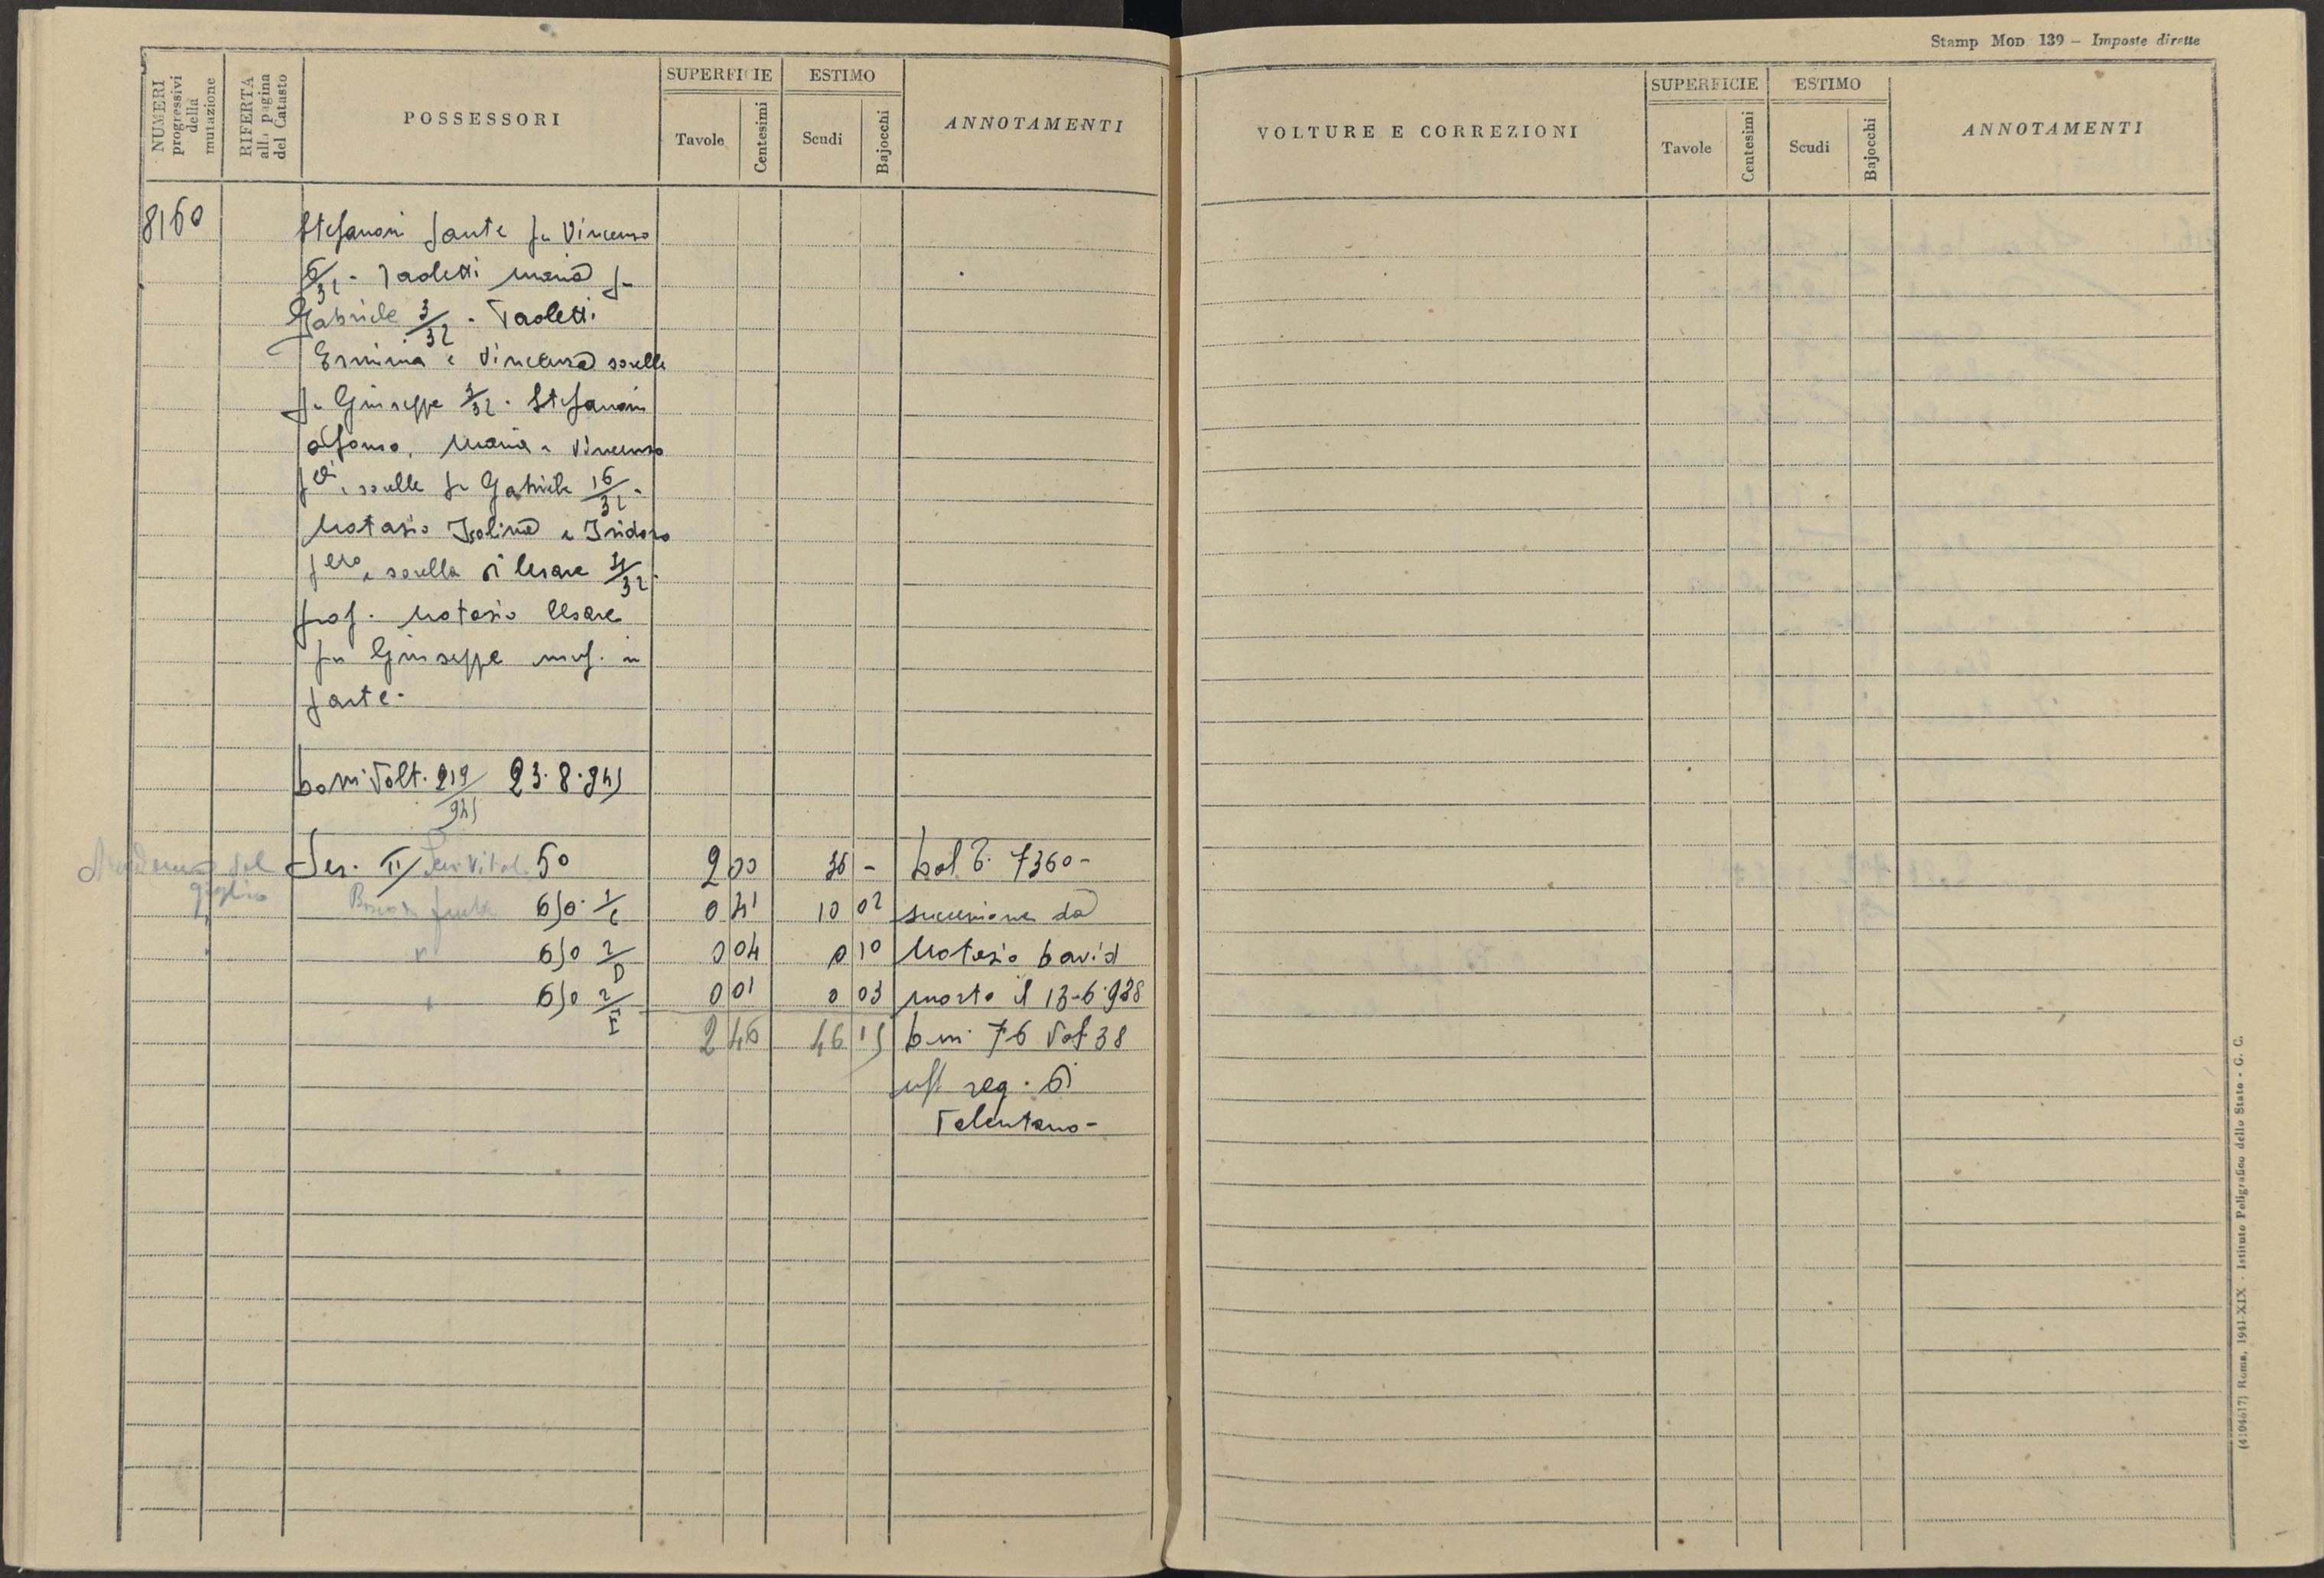 Stamp Mod 139 – Imposte dirette
NUMERI progressivi della mutazione
RIFERTA alla pagina del Catasto
POSSESSORI
SUPERFICIE
Tavole
Centesimi
ESTIMO
Scudi
Bajocchi
ANNOTAMENTI
VOLTURE E CORREZIONI
SUPERFICIE
Tavole
Centesimi
ESTIMO
Scudi
Bajocchi
ANNOTAMENTI
8160
Stefanoni Sante fu Vincenzo
6/32 - Paoletti Maria fu
Gabriele 3/32 - Paoletti
Erminia e Vincenza sorelle
fu Giuseppe 3/32 - Stefanoni
Alfonso, Maria e Vincenzo
f.lli e sorelle fu Gabriele 16/32 -
Notazio Isolina e Isidoro
f.llo e sorella di Cesare 4/32 -
prop. Notazio Cesare
fu Giuseppe usuf. in
parte -
Dom. Volt. 219/945 23.8.945
Sez. II 50 2 00 36 - Part. 7360 -
650 1/C 0 41 10 02 successione da
650 2/D 0 04 0 10 Notazio David
650 2/E 0 01 0 03 morto il 13-6-938
2 46 46 15 D. n. 76 Vol 38
uff. reg. di
Valentano -
(4104617) Roma, 1941-XIX - Istituto Poligrafico dello Stato - G. C.